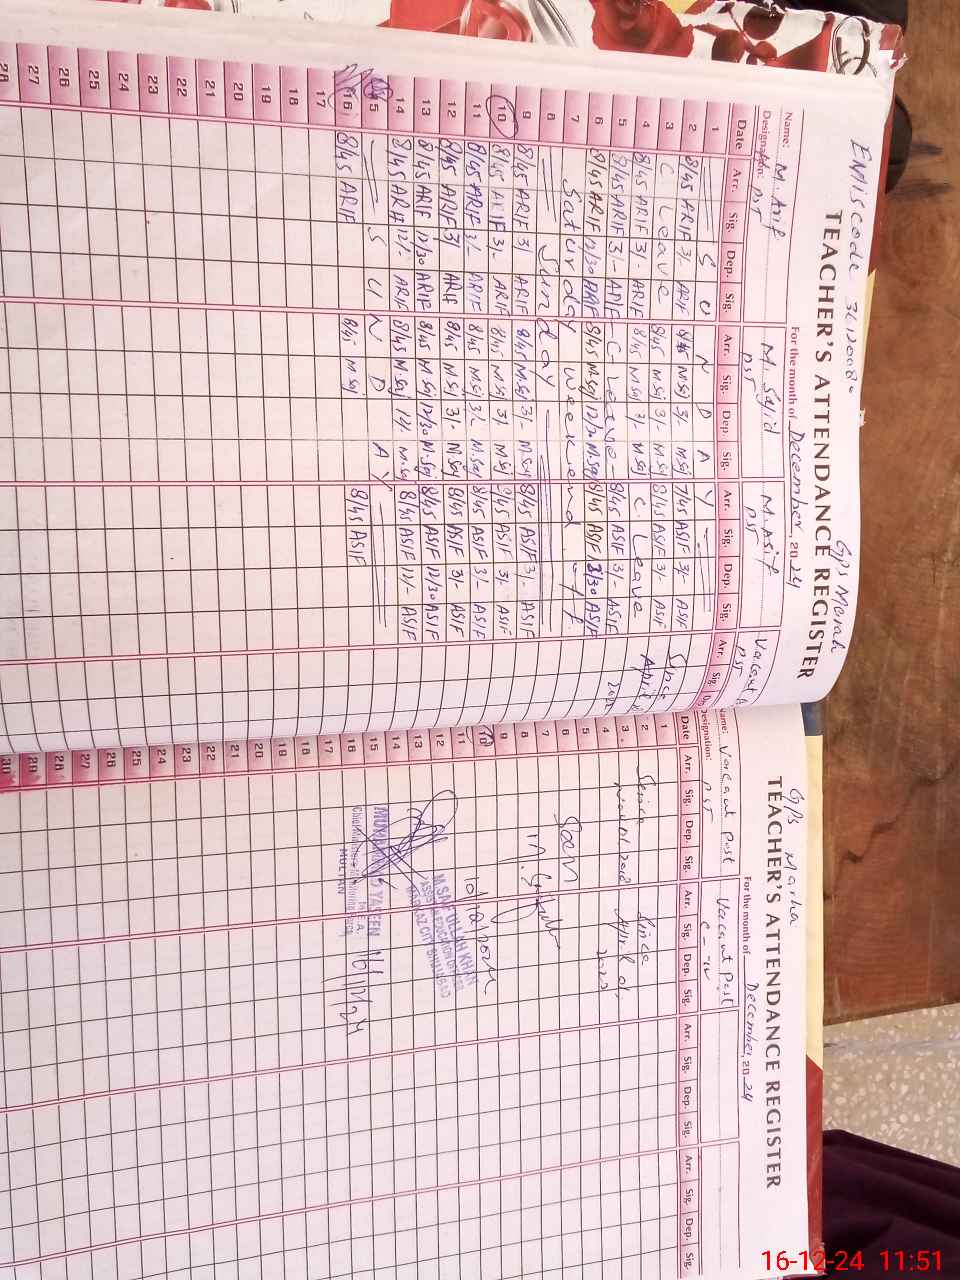 EMIS code
GPS Marah
TEACHER'S ATTENDANCE REGISTER
For the month of December, 2024
Name: M. Arif M. Sajid M. Asif Vacant
Designation: PST PST PST PST
Date Arr. Sig. Dep. Sig. Arr. Sig. Dep. Sig. Arr. Sig. Dep. Sig. Arr. Sig.
1 S U N D A Y
2 8/45 ARIF 3/- ARIF 8/45 M.Saj 3/- M.Saj 7/45 ASIF 3/- ASIF Since
3 C Leave 8/45 M.Saj 3/- M.Saj 8/45 ASIF 3/- ASIF April
4 8/45 ARIF 3/- ARIF 8/45 M.Saj 3/- M.Saj C Leave
5 8/45 ARIF 3/- ARIF - C - Leave - 8/45 ASIF 3/- ASIF
6 8/45 ARIF 12/30 ARIF 8/45 M.Saj 12/30 M.Saj 8/45 ASIF 12/30 ASIF
7 Saturday weekend
8 Sunday
9 8/45 ARIF 3/- ARIF 8/45 M.Saj 3/- M.Saj 8/45 ASIF 3/- ASIF
10 8/45 ARIF 3/- ARIF 8/45 M.Saj 3/- M.Saj 8/45 ASIF 3/- ASIF
11 8/45 ARIF 3/- ARIF 8/45 M.Saj 3/- M.Saj 8/45 ASIF 3/- ASIF
12 8/45 ARIF 3/- ARIF 8/45 M.Saj 3/- M.Saj 8/45 ASIF 3/- ASIF
13 8/45 ARIF 12/30 ARIF 8/45 M.Saj 12/30 M.Saj 8/45 ASIF 12/30 ASIF
14 8/45 ARIF 12/- ARIF 8/45 M.Saj 12/- M.Saj 8/45 ASIF 12/- ASIF
15 S U N D A Y
16 8/45 ARIF 8/45 M.Saj 8/45 ASIF
17
18
19
20
21
22
23
24
25
26
27
28
GPS Marha
TEACHER'S ATTENDANCE REGISTER
For the month of December, 2024
Name: Vacant Post Vacant Post
Designation: PST C-IV
Date Arr. Sig. Dep. Sig. Arr. Sig. Dep. Sig. Arr. Sig. Dep. Sig. Arr. Sig. Dep. Sig.
1
2 Since Since
3 April
4
5
6 Seen
7
8
9
10
11
12 M SAIF ULLAH KHAN
13 ASSISTANT EDUCATION OFFICER
14 MARKAZ CITY SHUJABAD
15 MUHAMMAD YASEEN 16/12/24
16 M.E.A
MULTAN
17
18
19
20
21
22
23
24
25
26
27
28
29
30
16-12-24 11:51